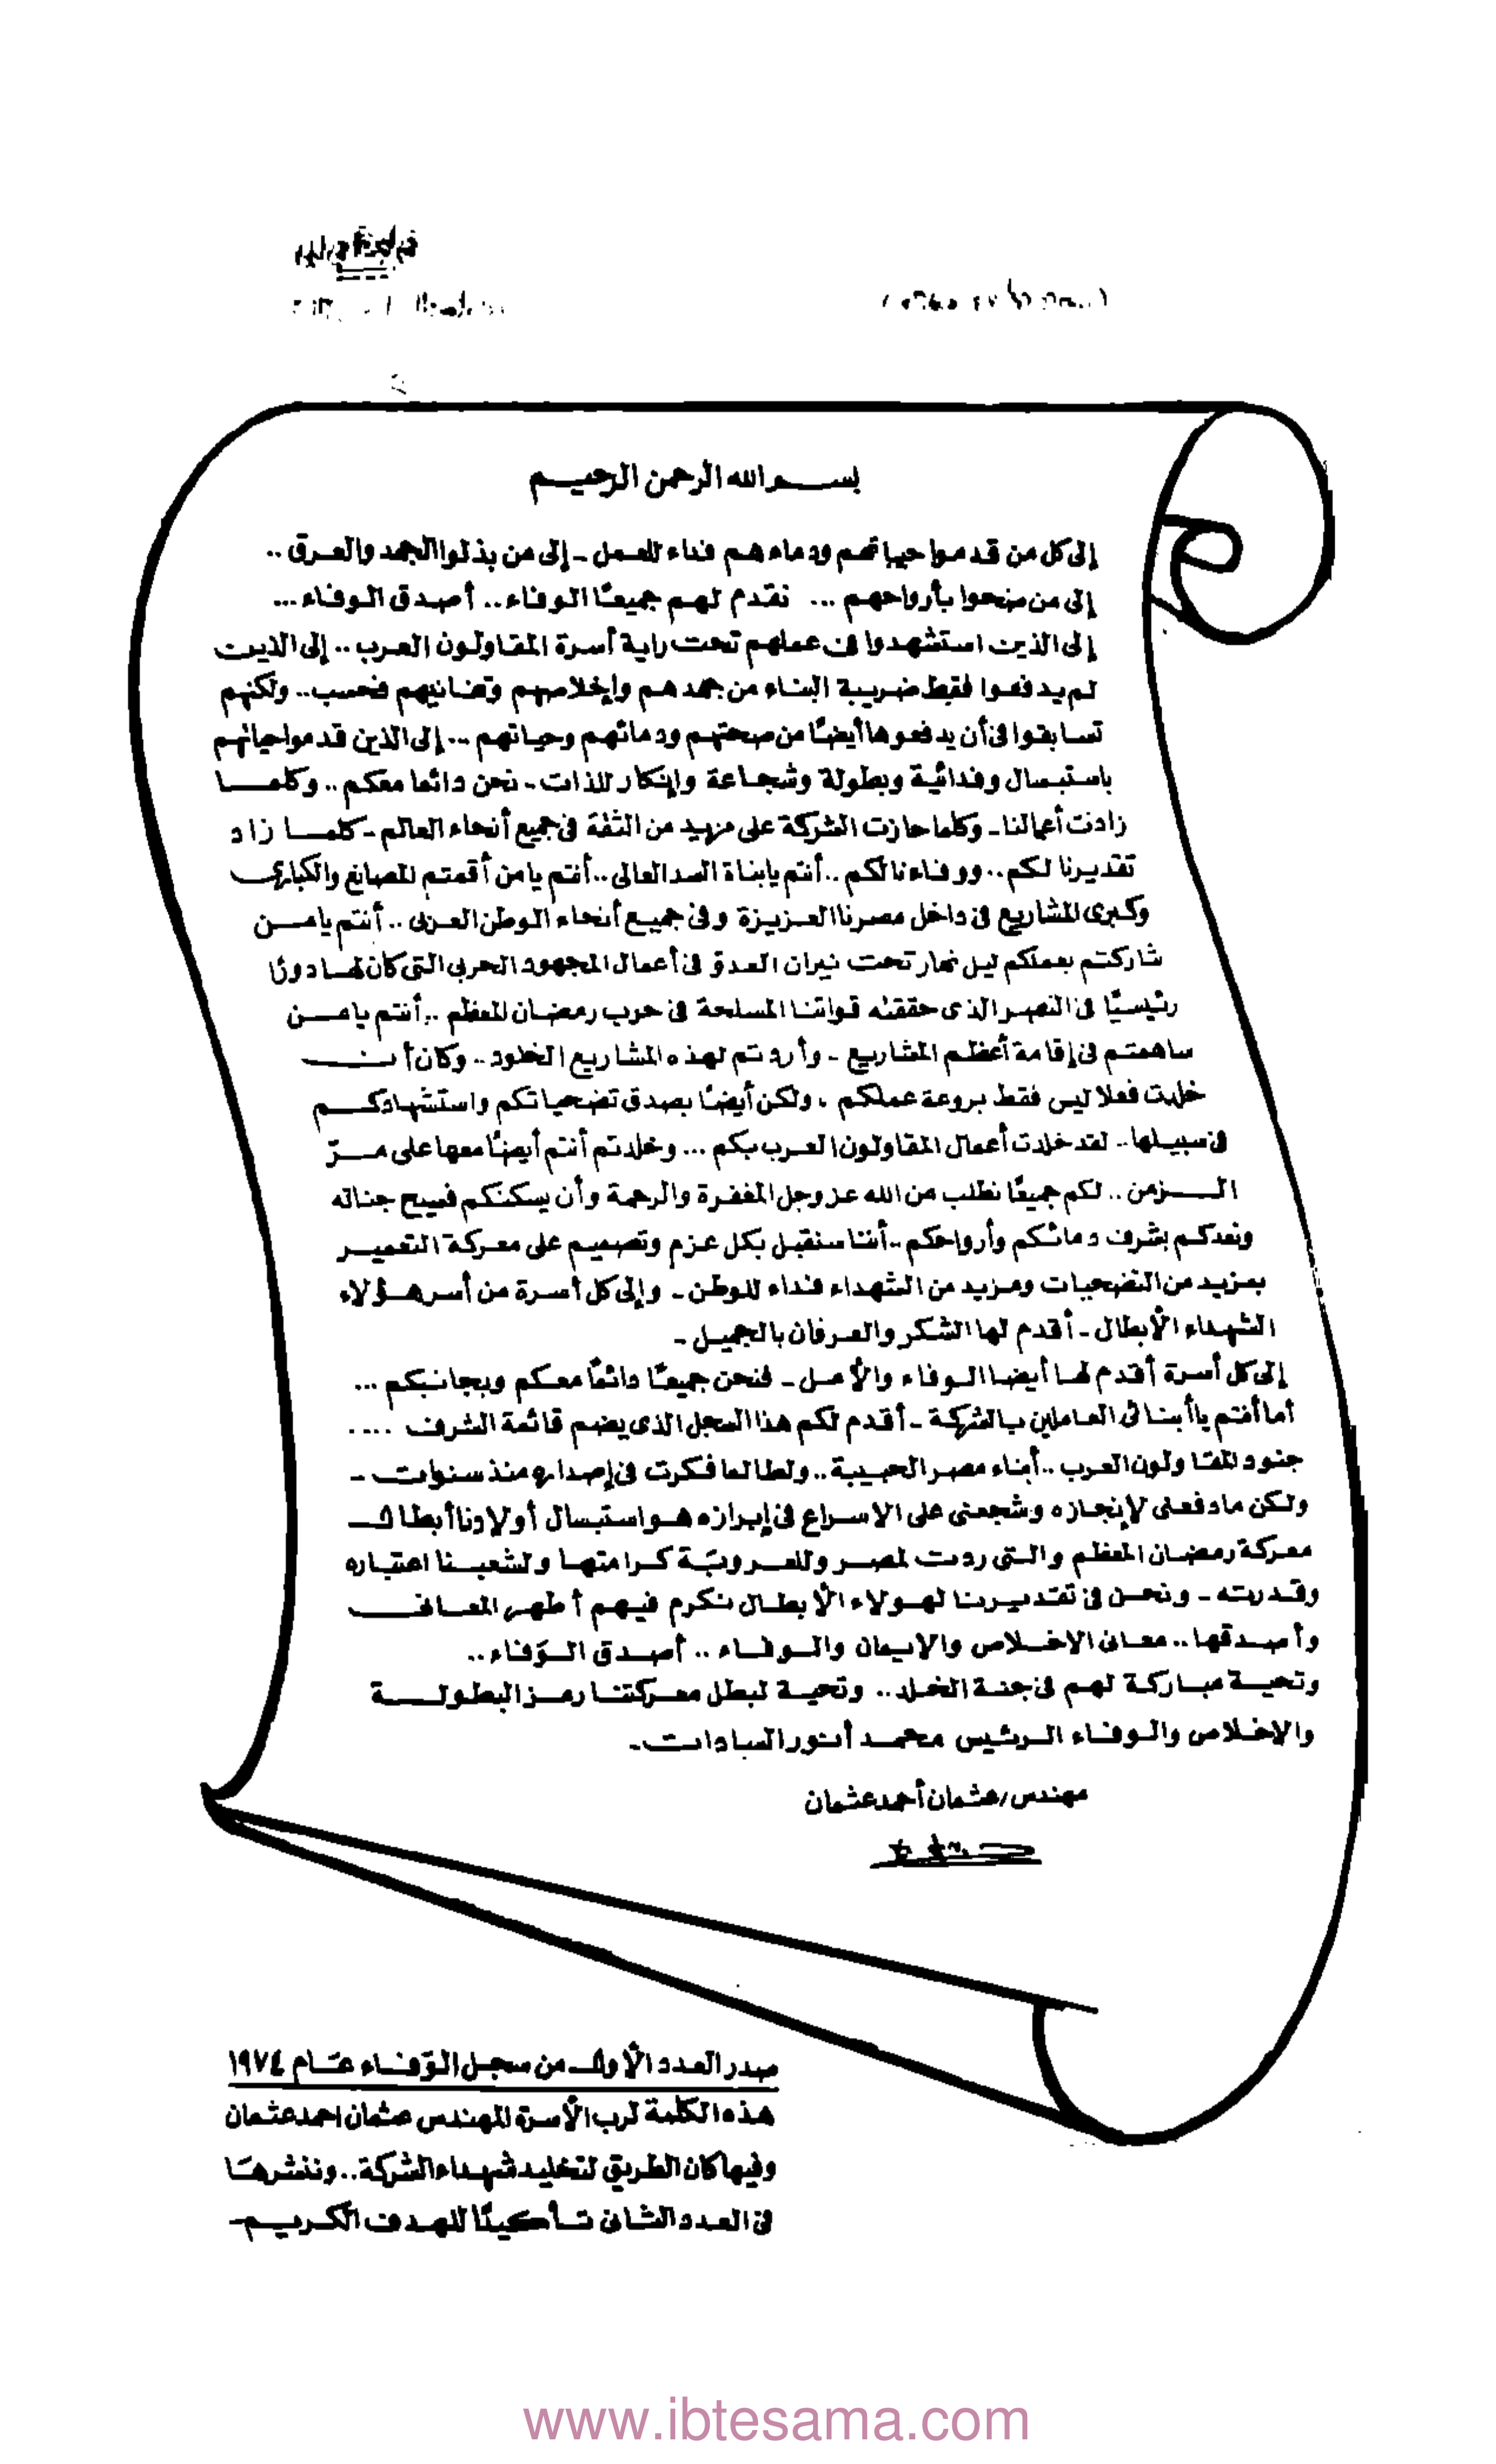 بسم الله الرحمن الرحيم
إلى كل من قدموا حياتهم ودماءهم فداء للعمل - إلى من بذلوا الجهد والعرق ..
إلى من منحوا بأرواحهم ... نقدم لهم جميعًا الوفاء .. أصدق الوفاء ...
إلى الذين استشهدوا فى عملهم تحت راية أسرة المقاولون العرب .. إلى الذين
لم يدفعوا فقط ضريبة البناء من جهدهم وإخلاصهم وتفانيهم فحسب .. ولكنهم
تسابقوا فى أن يدفعوها أيضًا من صحتهم ودمائهم وحياتهم ... إلى الذين قدموا حياتهم
باستبسال وفدائية وبطولة وشجاعة وإنكار للذات - نحن دائما معكم .. وكلما
زادت أعمالنا - وكلما حازت الشركة على مزيد من الثقة فى جميع أنحاء العالم - كلما زاد
تقديرنا لكم .. ووفاءنا لكم .. أنتم يابناة السد العالى .. أنتم يا من أقمتم المصانع والكبارى
وكبرى المشاريع فى داخل مصرنا العزيزة وفى جميع أنحاء الوطن العربى .. أنتم يا من
شاركتم بعملكم ليل نهار تحت نيران العدو فى أعمال المجهود الحربى التى كان لها دورًا
رئيسيًا فى النصر الذى حققته قواتنا المسلحة فى حرب رمضان المعظم .. أنتم يا من
ساهمتم فى إقامة أعظم المشاريع - وأردتم لهذه المشاريع الخلود .. وكان أن
خلدت فعلا ليس فقط بروعة عملكم ، ولكن أيضًا بصدق تضحياتكم واستشهادكم
فى سبيلها .. لقد خلدت أعمال المقاولون العرب بكم ... وخلدتم أنتم أيضًا معها على مرّ
الزمن .. لكم جميعًا نطلب من الله عز وجل المغفرة والرحمة وأن يسكنكم فسيح جناته
ونعدكم بشرف دمائكم وأرواحكم .. أننا سنقبل بكل عزم وتصميم على معركة التعمير
بمزيد من التضحيات ومزيد من الشهداء فداء للوطن - وإلى كل أسرة من أسر هؤلاء
الشهداء الأبطال - أقدم لها الشكر والعرفان بالجميل -
إلى كل أسرة أقدم لها أيضا الوفاء والأمل - فنحن جميعًا دائمًا معكم وبجانبكم ...
أما أنتم ياأبنائى العاملين بالشركة - أقدم لكم هذا السجل الذى يضم قائمة الشرف ....
جنود المقاولون العرب .. أبناء مصر الحبيبة .. ولطالما فكرت فى إصداره منذ سنوات -
ولكن مادفعنى لإنجازه وشجعنى على الاسراع فى إبرازه هو استبسال أولادنا أبطال
معركة رمضان المعظم والتى ردت لمصر وللعروبة كرامتها ولشعبنا اعتباره
وقدرته - ونحن فى تقديرنا لهولاء الأبطال نكرم فيهم أطهر المعانى
وأصدقها .. معانى الاخلاص والايمان والوفاء .. أصدق الوفاء ..
وتحية مباركة لهم فى جنة الخلد .. وتحية لبطل معركتنا رمز البطولة
والإخلاص والوفاء الرئيس محمد أنور السادات -
مهندس / عثمان أحمد عثمان
صدر العدد الأول من سجل الوفاء عام ١٩٧٤
هذه الكلمة لرب الأسرة المهندس عثمان احمد عثمان
وفيها كان الطريق لتخليد شهداء الشركة .. وننشرها
فى العدد الثانى تأكيدًا للهدف الكريم -
www.ibtesama.com